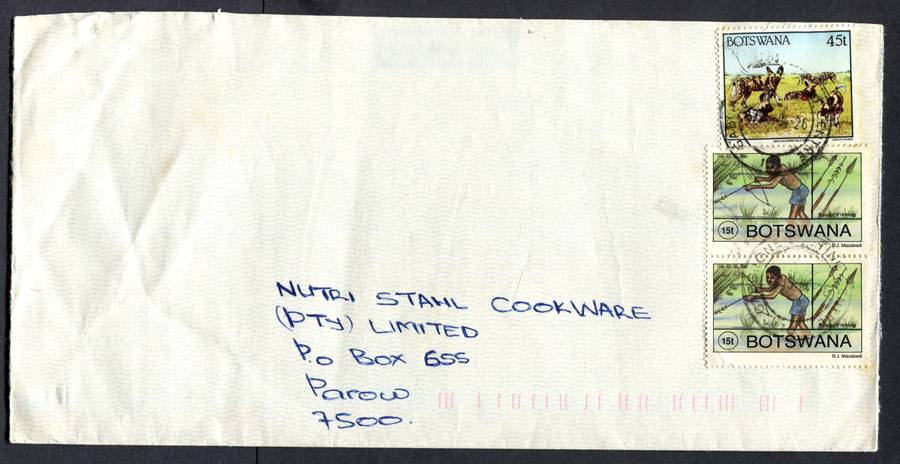 BOTSWANA 45t
Spear Fishing
15t BOTSWANA
B.J. Mazebedi
Spear Fishing
15t BOTSWANA
B.J. Mazebedi
26
NUTRI STAHL COOKWARE
(PTY) LIMITED
P.O BOX 655
Parow
7500.